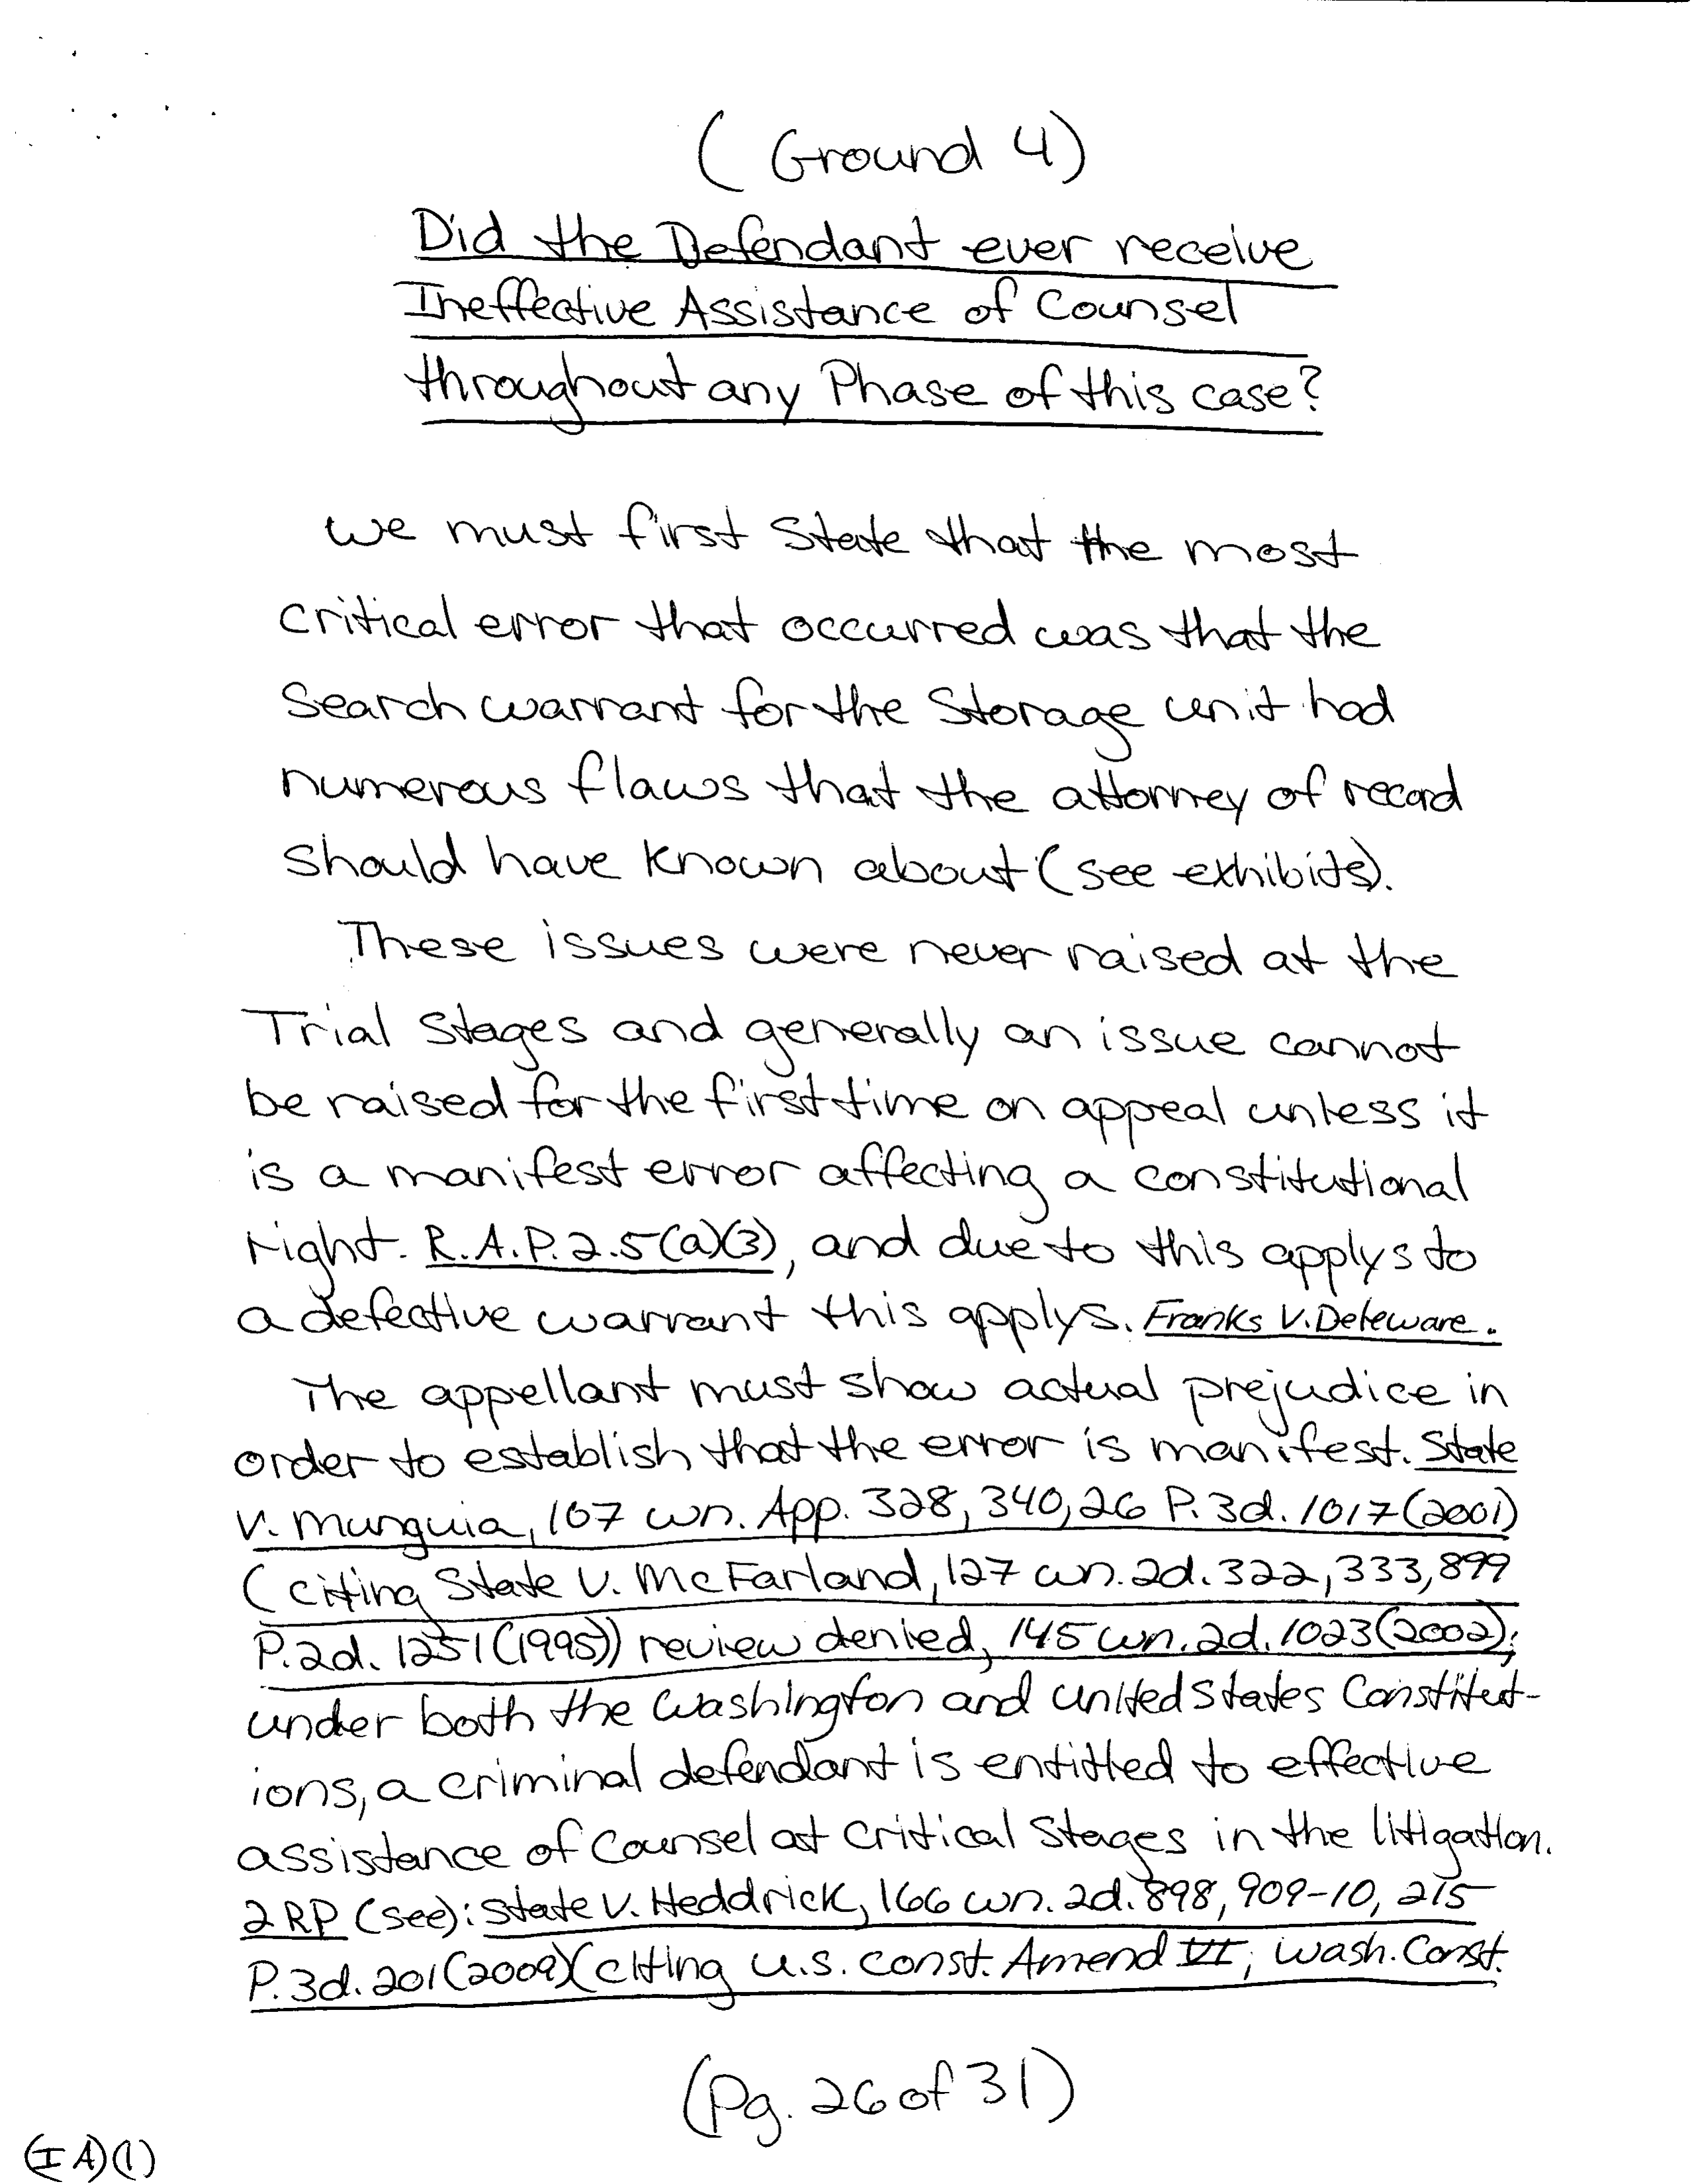 ( Ground 4)
Did the Defendant ever receive
Ineffective Assistance of Counsel
throughout any Phase of this case?
we must first State that the most
critical error that occurred was that the
Search warrant for the Storage unit had
numerous flaws that the attorney of record
should have known about (see exhibits).
These issues were never raised at the
Trial Stages and generally an issue cannot
be raised for the first time on appeal unless it
is a manifest error affecting a constitutional
right. R.A.P. 2.5(a)(3), and due to this applys to
a defective warrant this applys. Franks V. Deleware.
The appellant must show actual prejudice in
order to establish that the error is manifest. State
V. Munguia, 107 wn. App. 328, 340, 26 P. 3d. 1017 (2001)
(citing State V. McFarland, 127 wn. 2d. 322, 333, 899
P. 2d. 1251 (1995)) review denied, 145 wn. 2d. 1023 (2002);
under both the Washington and United States Constitut-
ions, a criminal defendant is entitled to effective
assistance of Counsel at Critical Stages in the litigation.
2 RP (see): State V. Heddrick, 166 wn. 2d. 898, 909-10, 215
P. 3d. 201 (2009) (citing U.S. const. Amend VI; Wash. Const.
(Pg. 26 of 31)
(I A)(1)